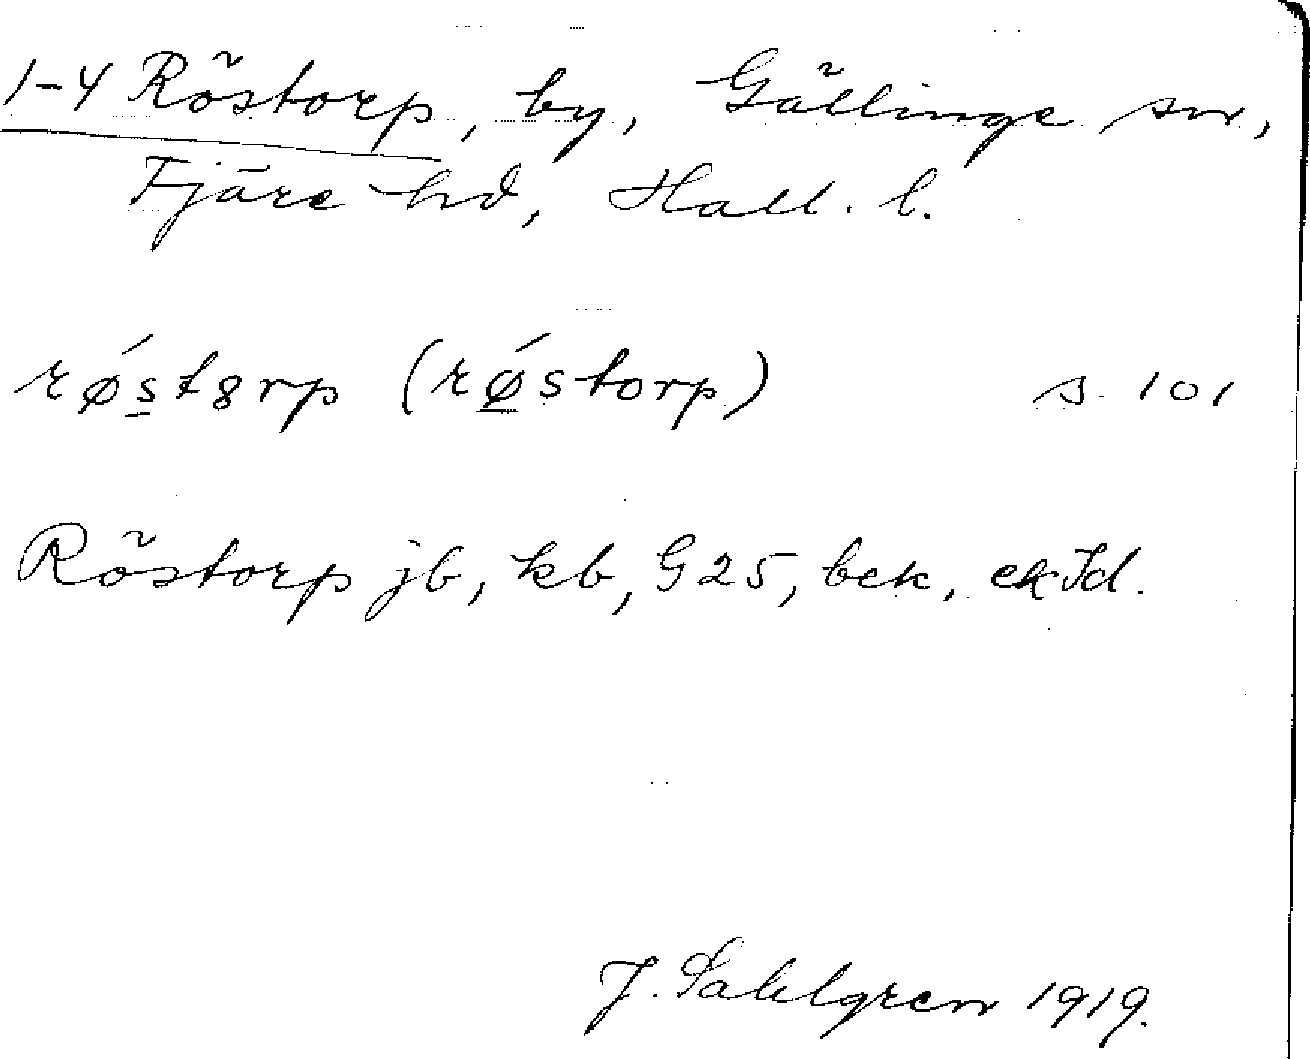 1-4 Röstorp, by, Gällinge sn,
Fjäre hd, Hall. l.
rǿst8rp (rǿstorp) s. 101
Röstorp jb, kb, G25, bek, ekJd.
J. Sahlgren 1919.